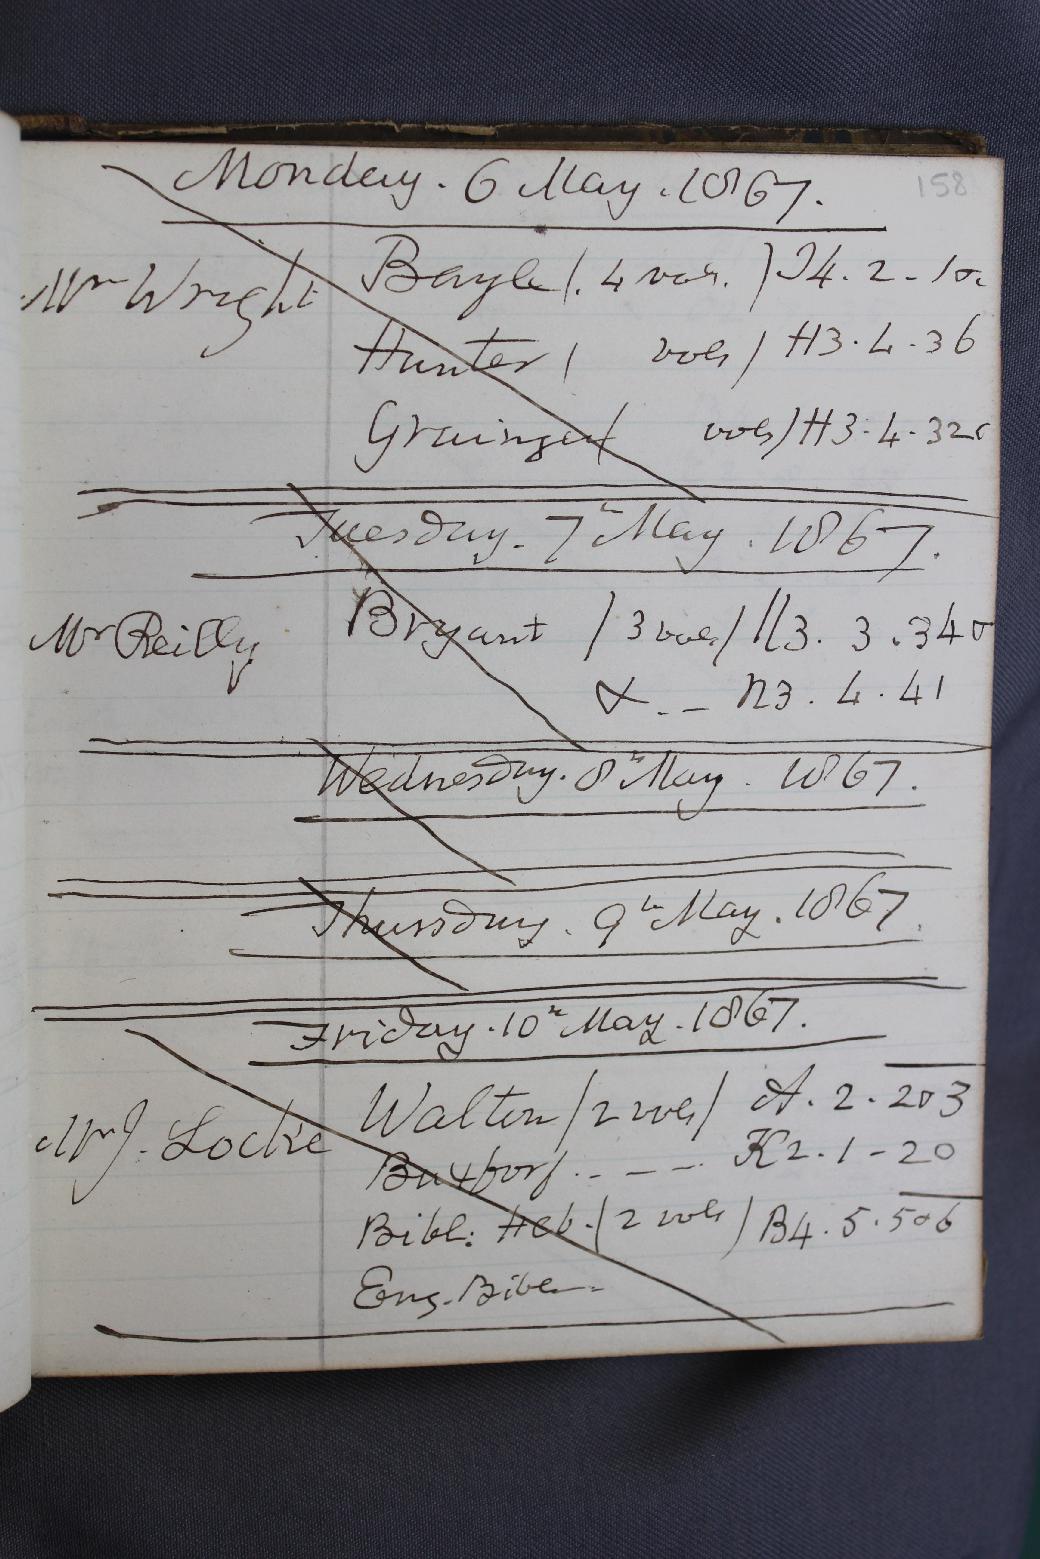 158
Monday. 6 May. 1867.
Mr Wright Bayle (. 4 vols.) I4. 2-10
Hunter ( vols) H3. 4. 36
Grainger ( vols) H3. 4. 32
Tuesday. 7th May. 1867.
Mr Reilly Bryant (3 vols) 3. 3. 34
& -- 3. 4. 41
Wednesday. 8th May. 1867.
Thursday. 9th May. 1867.
Friday. 10th May. 1867.
Mr J. Locke Walton (2 vols) A. 2. 203
Buxtorf. --- K2. 1-20
Bibl: Heb. (2 vols) B4. 5. 506
Eng. Bible